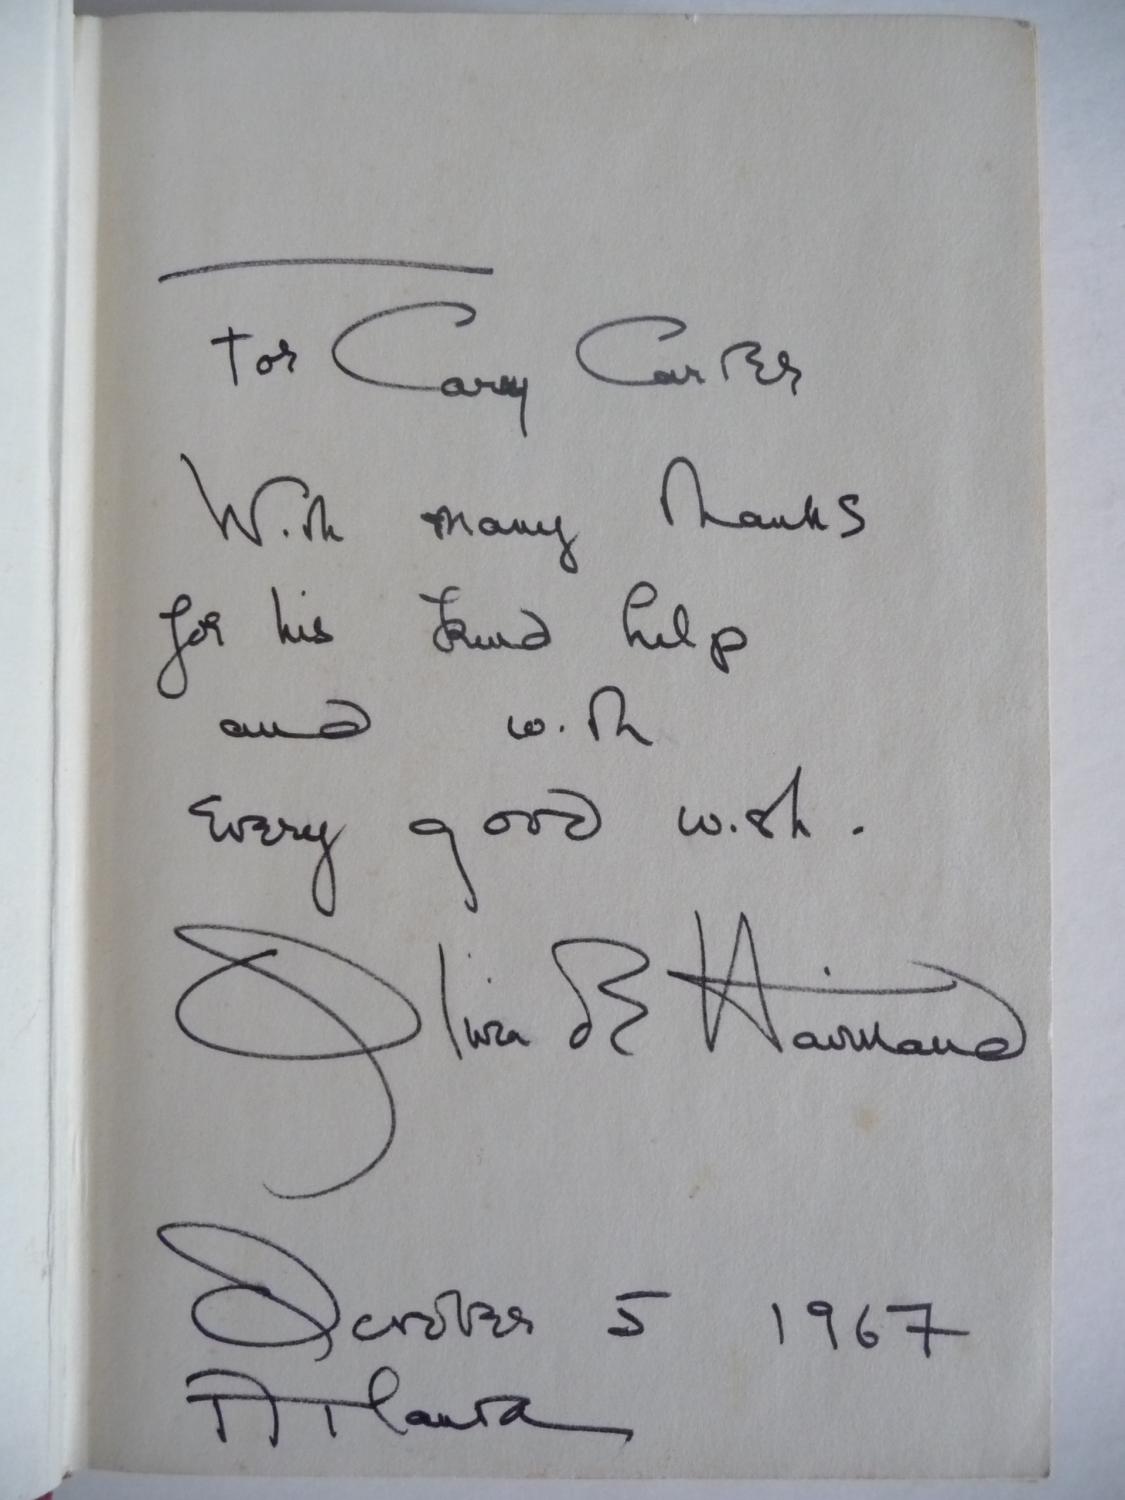 For Cary Carter
With many thanks
for his kind help
and with
every good wish.
Olivia de Havilland
October 5 1967
Atlanta